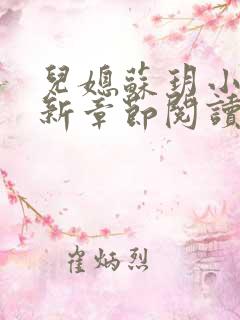 兒媳蘇玥小
新章節閱讀
崔炳烈